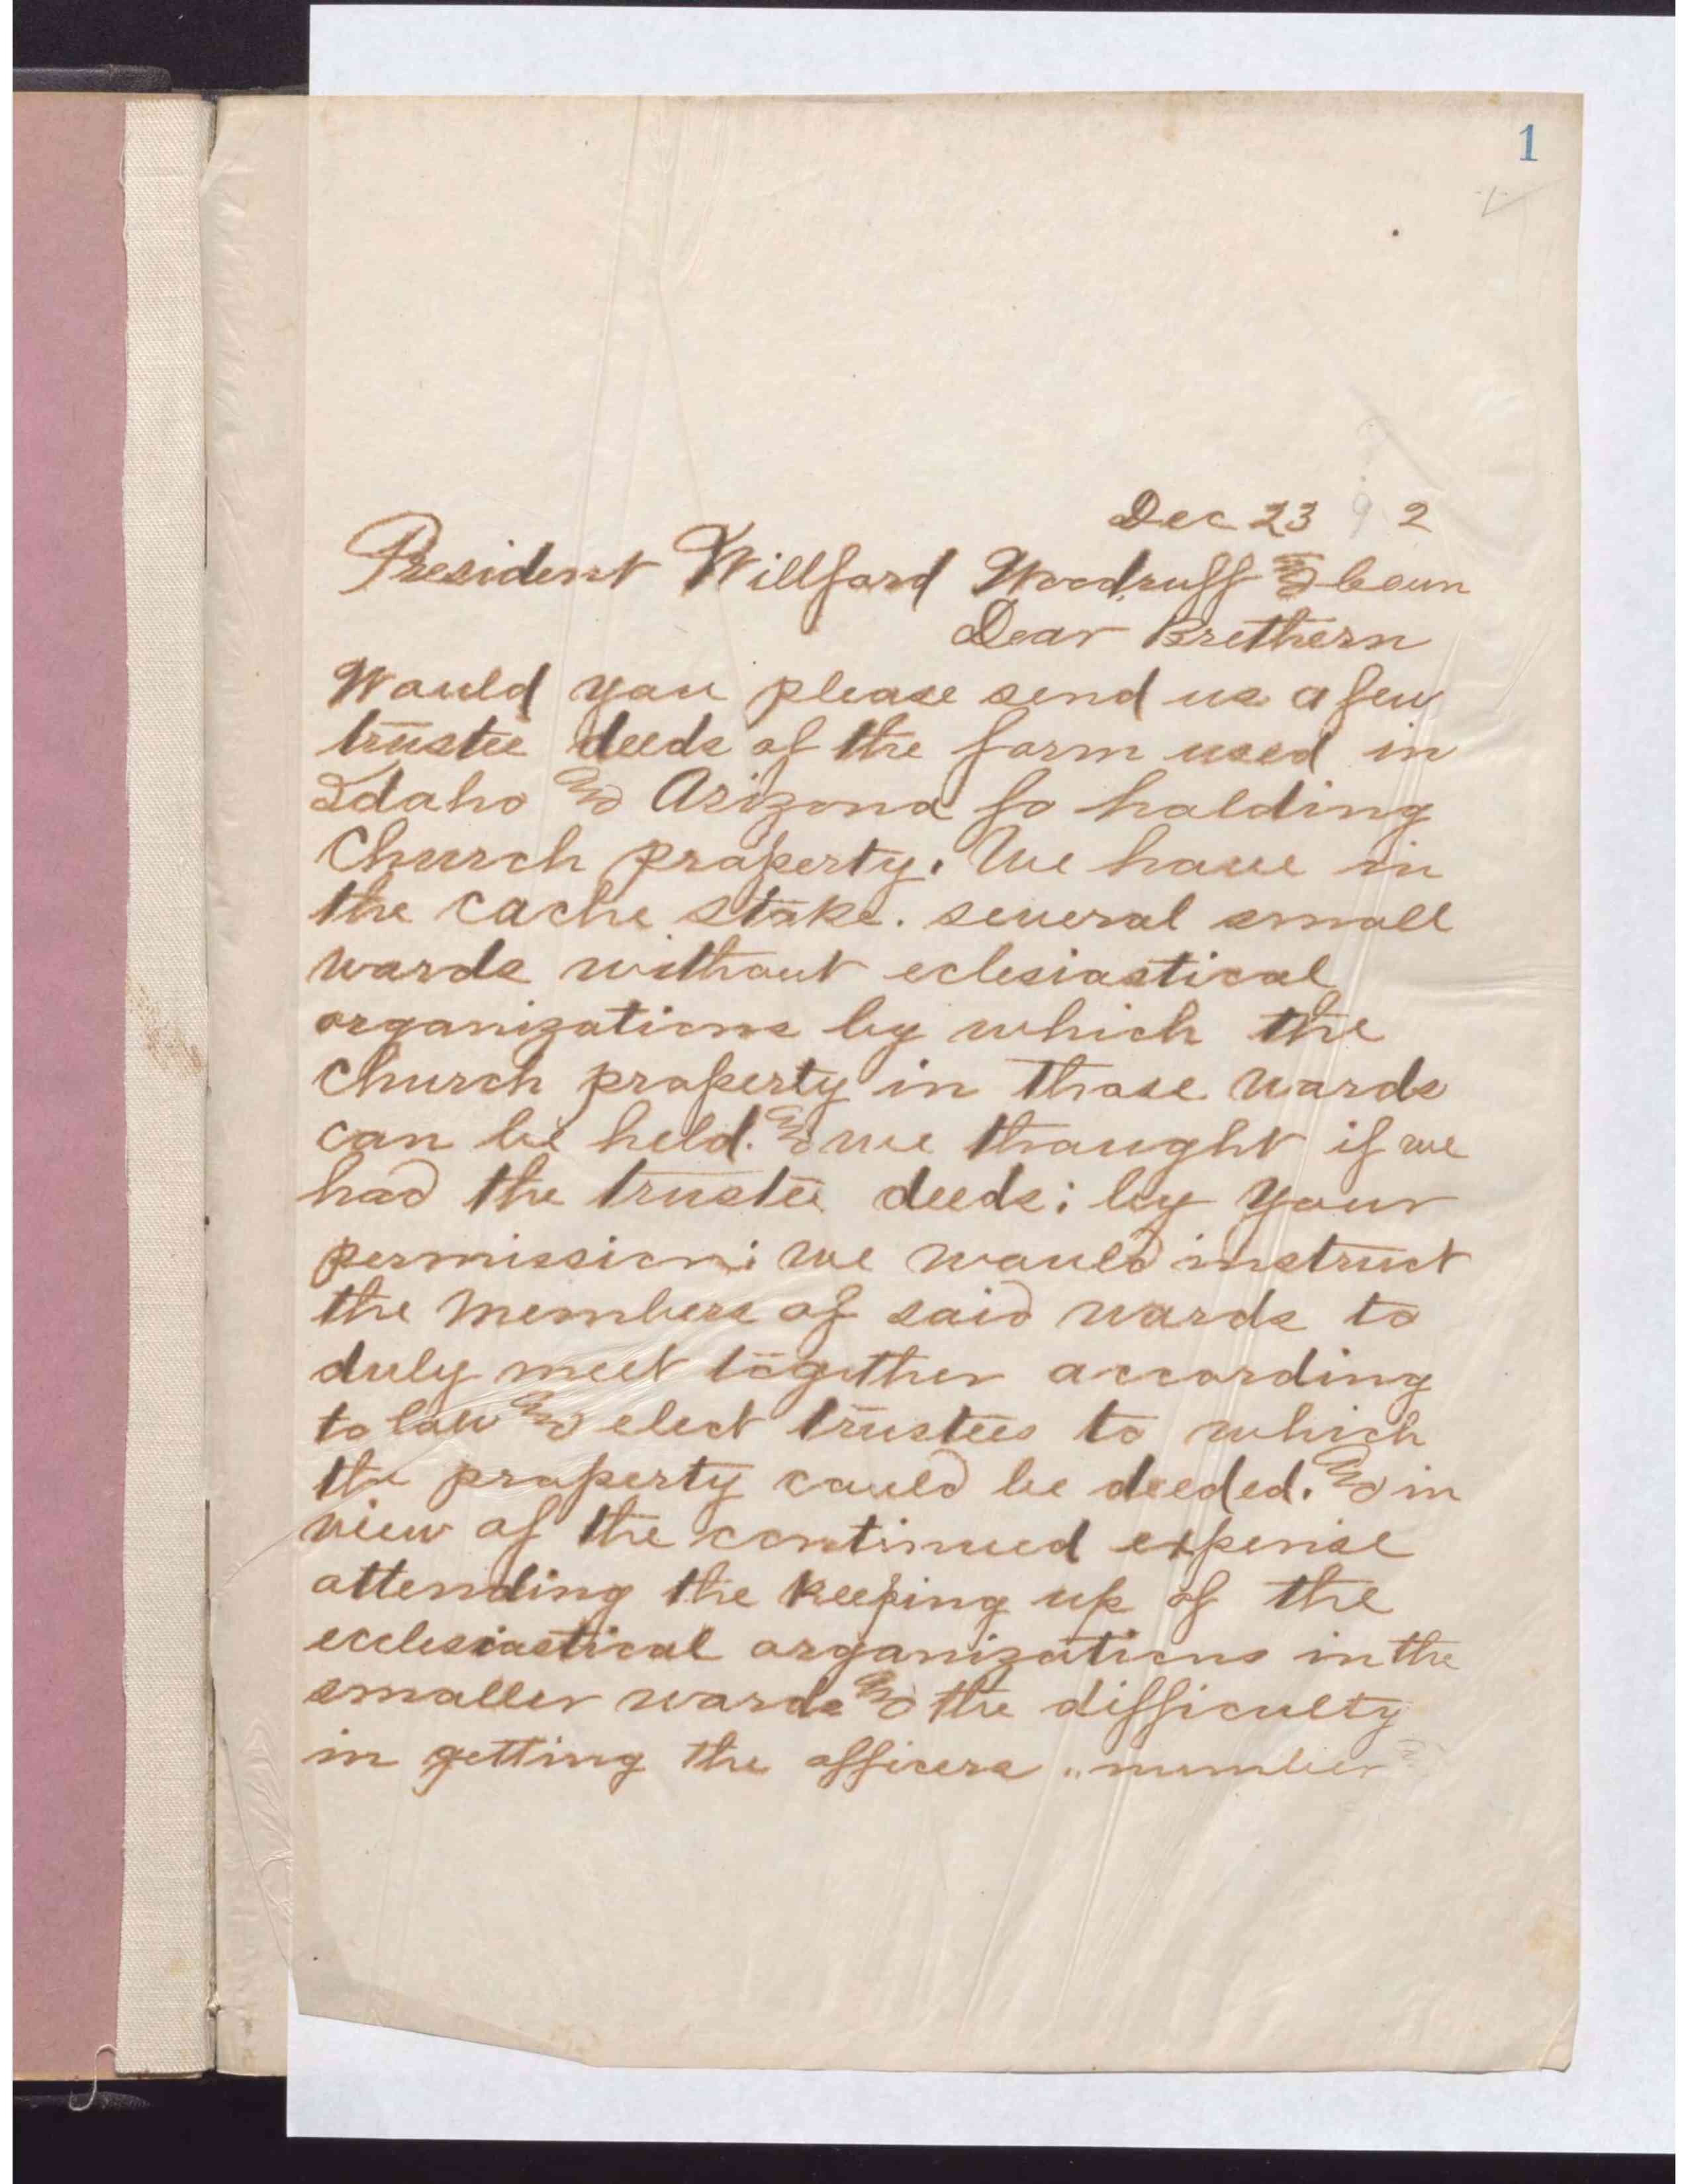 1
Dec 23 9 2
President Willford Woodruff & Coun
Dear Brethern
Would you please send us a few
trustee deeds of the form used in
Idaho & Arizona fo holding
Church property. We have in
the cache stake. several small
wards without eclesiastical
organizations by which the
Church property in those wards
can be held. & we thought if we
had the trustee deeds; by your
permission; we would instruct
the Members of said wards to
duly meet together according
to law & elect trustees to which
the property could be deeded. & in
view of the continued expense
attending the keeping up of the
ecclesiastical organizations in the
smaller wards & the difficulty
in getting the officers